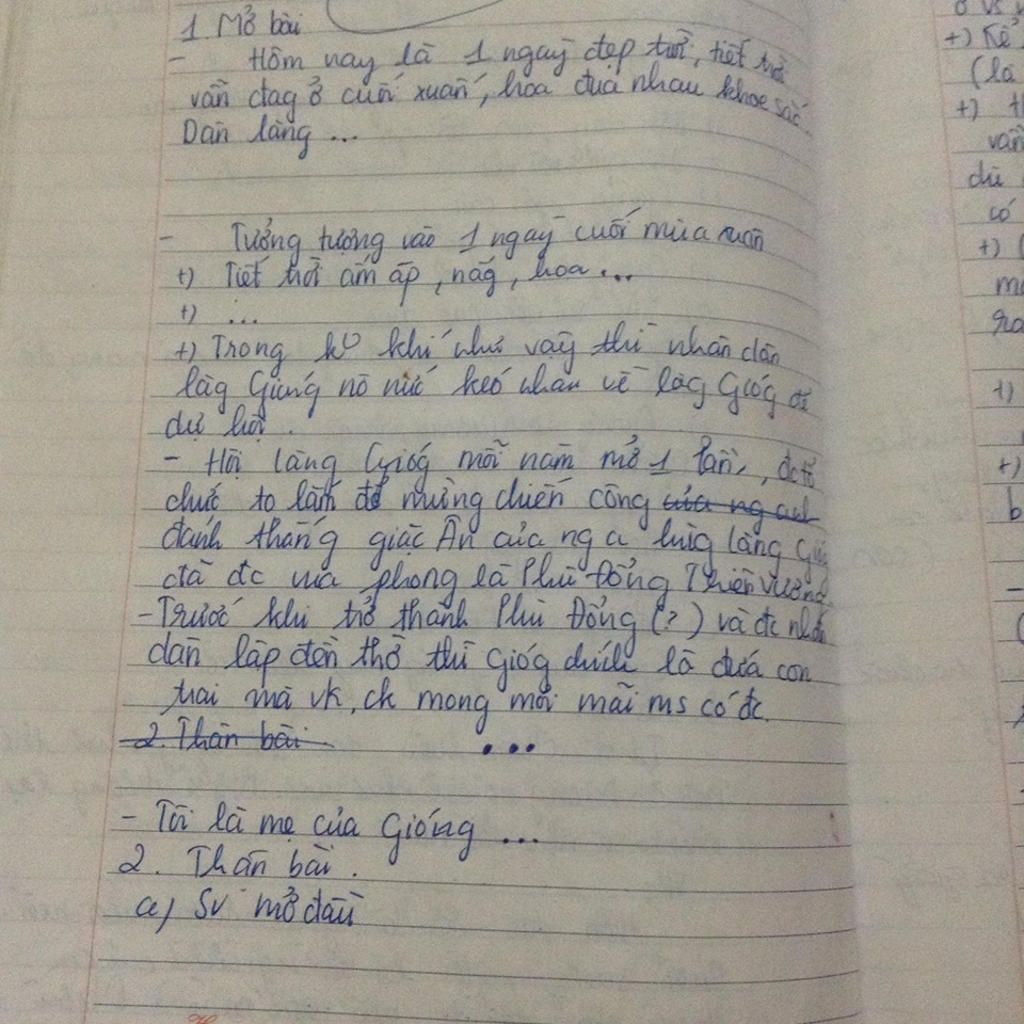 1. Mở bài
- Hôm nay là 1 ngày đẹp trời, tiết trời
vẫn đag ở cuối xuân, hoa đua nhau khoe sắc.
Dân làng ...
- Tưởng tượng vào 1 ngày cuối mùa xuân
+) Tiết trời ấm áp, nắg, hoa ...
+) ...
+) Trong ko khí như vậy thì nhân dân
làg Gióng nô nức kéo nhau về làg Gióg để
dự hội.
- Hội làng Gióg mỗi năm mở 1 lần, đc tổ
chức to lắm để mừng chiến công của ng anh
đánh thắng giặc Ân của ng a hùg làng Gióg
đã đc vua phong là Phù Đổng Thiên Vương.
- Trước khi trở thành Phù Đổng (?) và đc nhân
dân lập đền thờ thì Gióg chính là đứa con
trai mà vk, ck mong mỏi mãi ms có đc.
2. Thân bài
...
- Tôi là mẹ của Gióng ...
2. Thân bài.
a) SV mở đầu
+) Kể
(là
+)
vẫn
dù
có
+) (
+)
+)
b
-
(